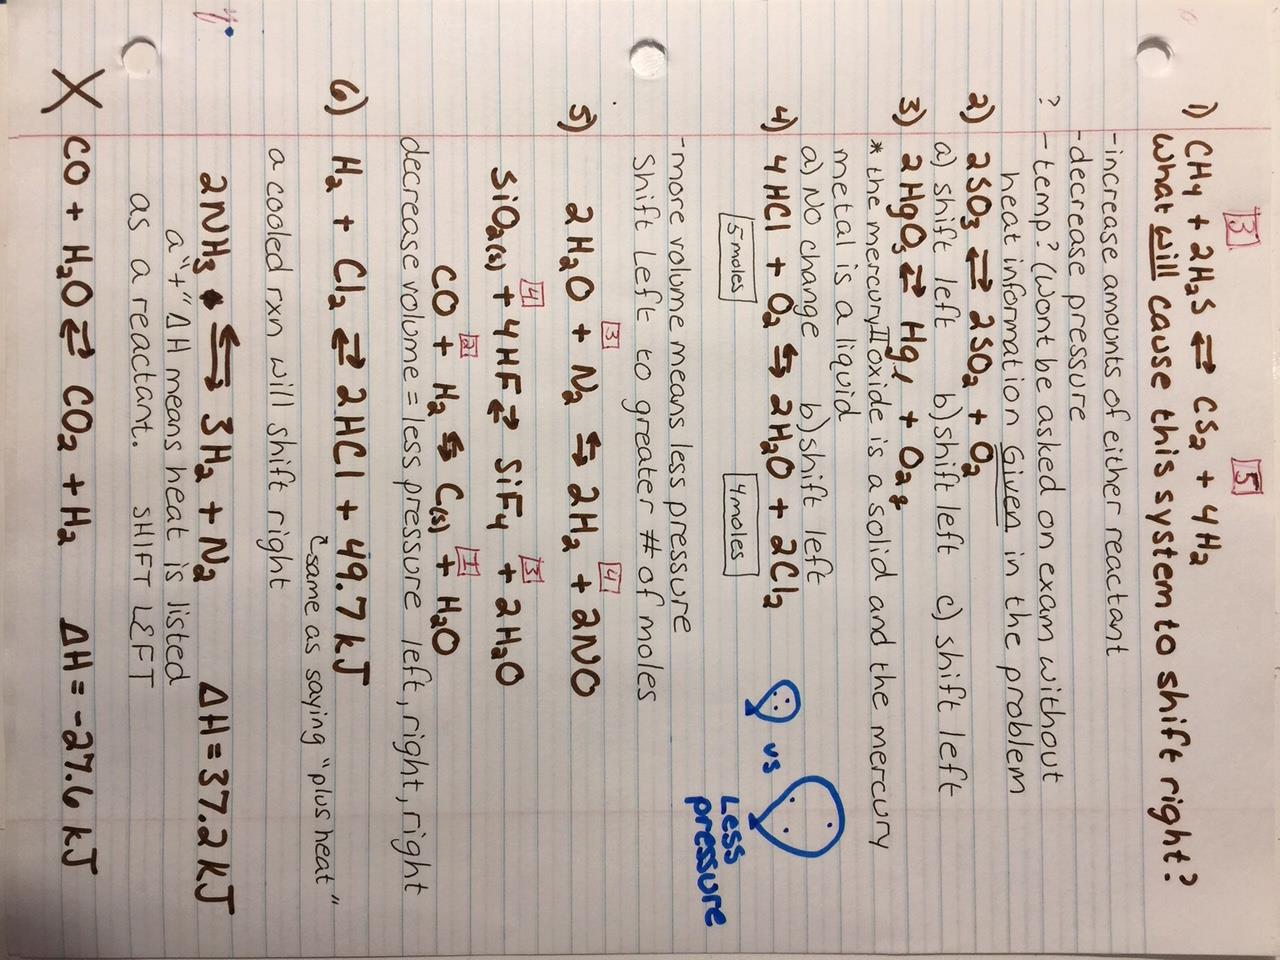 3 5
1) CH4 + 2H2S ⇄ CS2 + 4H2
What will cause this system to shift right?
-increase amounts of either reactant
-decrease pressure
? -temp? (Wont be asked on exam without
heat information Given in the problem
2) 2SO3 ⇄ 2SO2 + O2
a) shift left b) shift left c) shift left
3) 2HgO5 ⇄ Hgl + O2g
* the mercury II oxide is a solid and the mercury
metal is a liquid
a) No change b) shift left
4) 4HCl + O2 ⇆ 2H2O + 2Cl2
5 moles 4 moles
vs
Less
pressure
-more volume means less pressure
Shift Left to greater # of moles
3 4
5) 2H2O + N2 ⇄ 2H2 + 2NO
4 3
SiO2(s) + 4HF ⇄ SiF4 + 2H2O
2 1
CO + H2 ⇆ C(s) + H2O
decrease volume = less pressure left, right, right
6) H2 + Cl2 ⇄ 2HCl + 49.7 kJ
same as saying "plus heat"
a cooled rxn will shift right
2NH3 ⇆ 3H2 + N2 ΔH = 37.2 kJ
a "+" ΔH means heat is listed
as a reactant. SHIFT LEFT
X CO + H2O ⇄ CO2 + H2 ΔH = -27.6 kJ